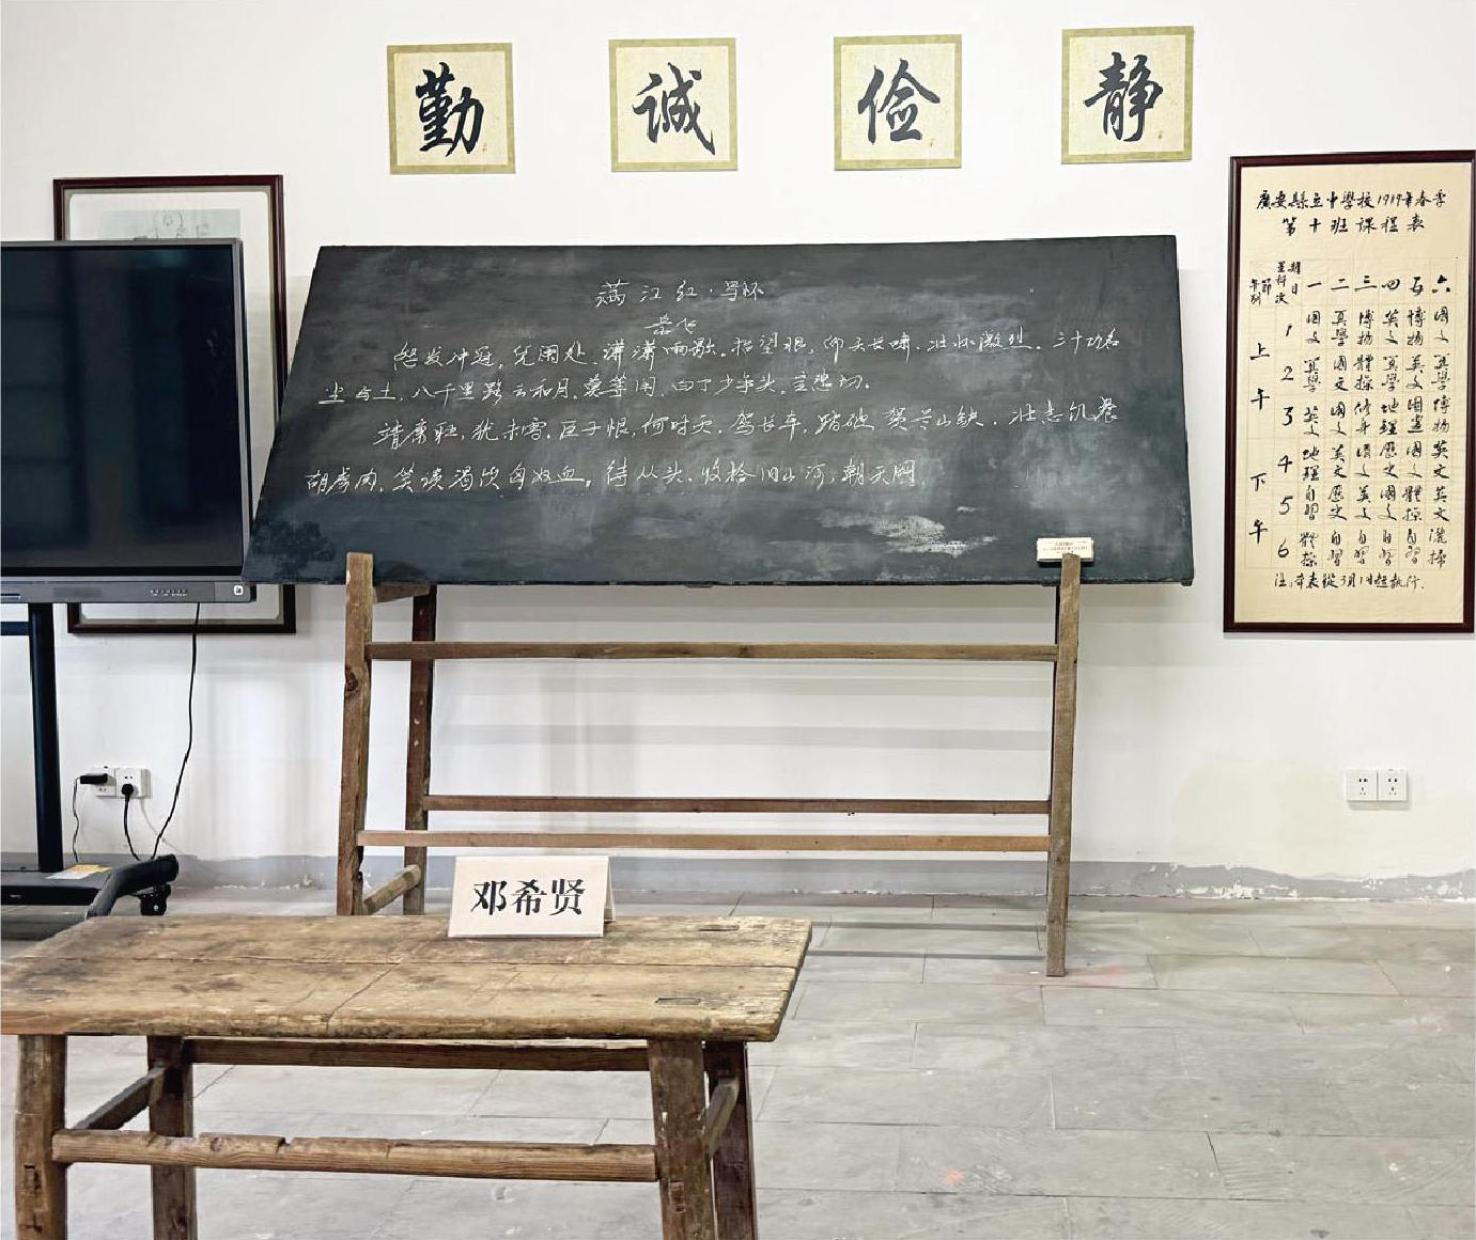 勤 诚 俭 静
满江红·写怀
岳飞
怒发冲冠，凭阑处、潇潇雨歇。抬望眼，仰天长啸，壮怀激烈。三十功名
尘与土，八千里路云和月。莫等闲、白了少年头，空悲切。
靖康耻，犹未雪。臣子恨，何时灭。驾长车，踏破贺兰山缺。壮志饥餐
胡虏肉，笑谈渴饮匈奴血。待从头、收拾旧山河，朝天阙。
廣安縣立中學校1919年春季
第十班課程表
星期日 科次 節 午别 一 二 三 四 五 六
上午
1 國文 算學 博物 英文 博物 國文
2 算學 國文 體操 算學 英文 算學
3 英文 國文 修身 地理 圖畫 博物
下午
4 地理 英文 國文 歷史 國文 英文
5 自習 歷史 英文 國文 體操 英文
6 體操 自習 自習 自習 自習 灑掃
注：本表從3月1日起執行.
邓希贤